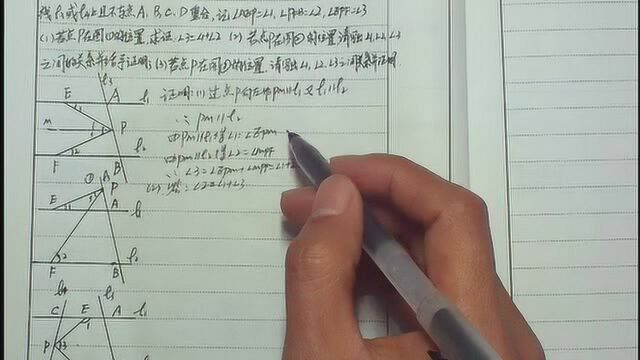 线l₃或l₄上且不与点A、B、C、D重合,记∠AEP=∠1,∠PFB=∠2,∠EPF=∠3
(1)若点P在图①的位置,求证∠3=∠1+∠2 (2)若点P在图②的位置,请写出∠1,∠2,∠3
之间的关系并给予证明;(3)若点P在图③的位置,请写出∠1,∠2,∠3之间关系并证明
证明:(1)过点P向左作PM∥l₁ 又l₁∥l₂
∴ PM∥l₂
由PM∥l₁得∠1=∠EPM
由PM∥l₂得∠2=∠MPF
∴ ∠3=∠EPM+∠MPF=∠1+∠2
(2) ∠2=∠1+∠3
l₃
E A l₁
M P
F 2 B l₂
① P
E 1 A l₁
F 2 B l₂
l₄ l₃
C E A l₁
1
P 3